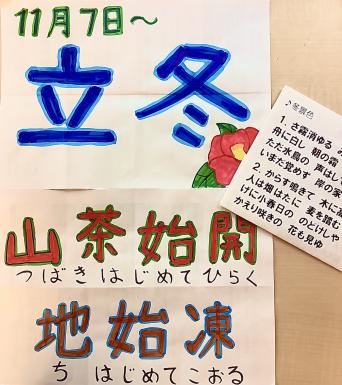 11月7日～
立冬
山茶始開
つばきはじめてひらく
地始凍
ちはじめてこおる
♪冬景色
1. さ霧消ゆる
舟に白し 朝の霜
ただ水鳥の 声はし
いまだ覚めず 岸の家
2. からす鳴きて 木に
人は畑はたに 麦を踏む
げに小春日の のどけしや
かえり咲きの 花も見ゆ